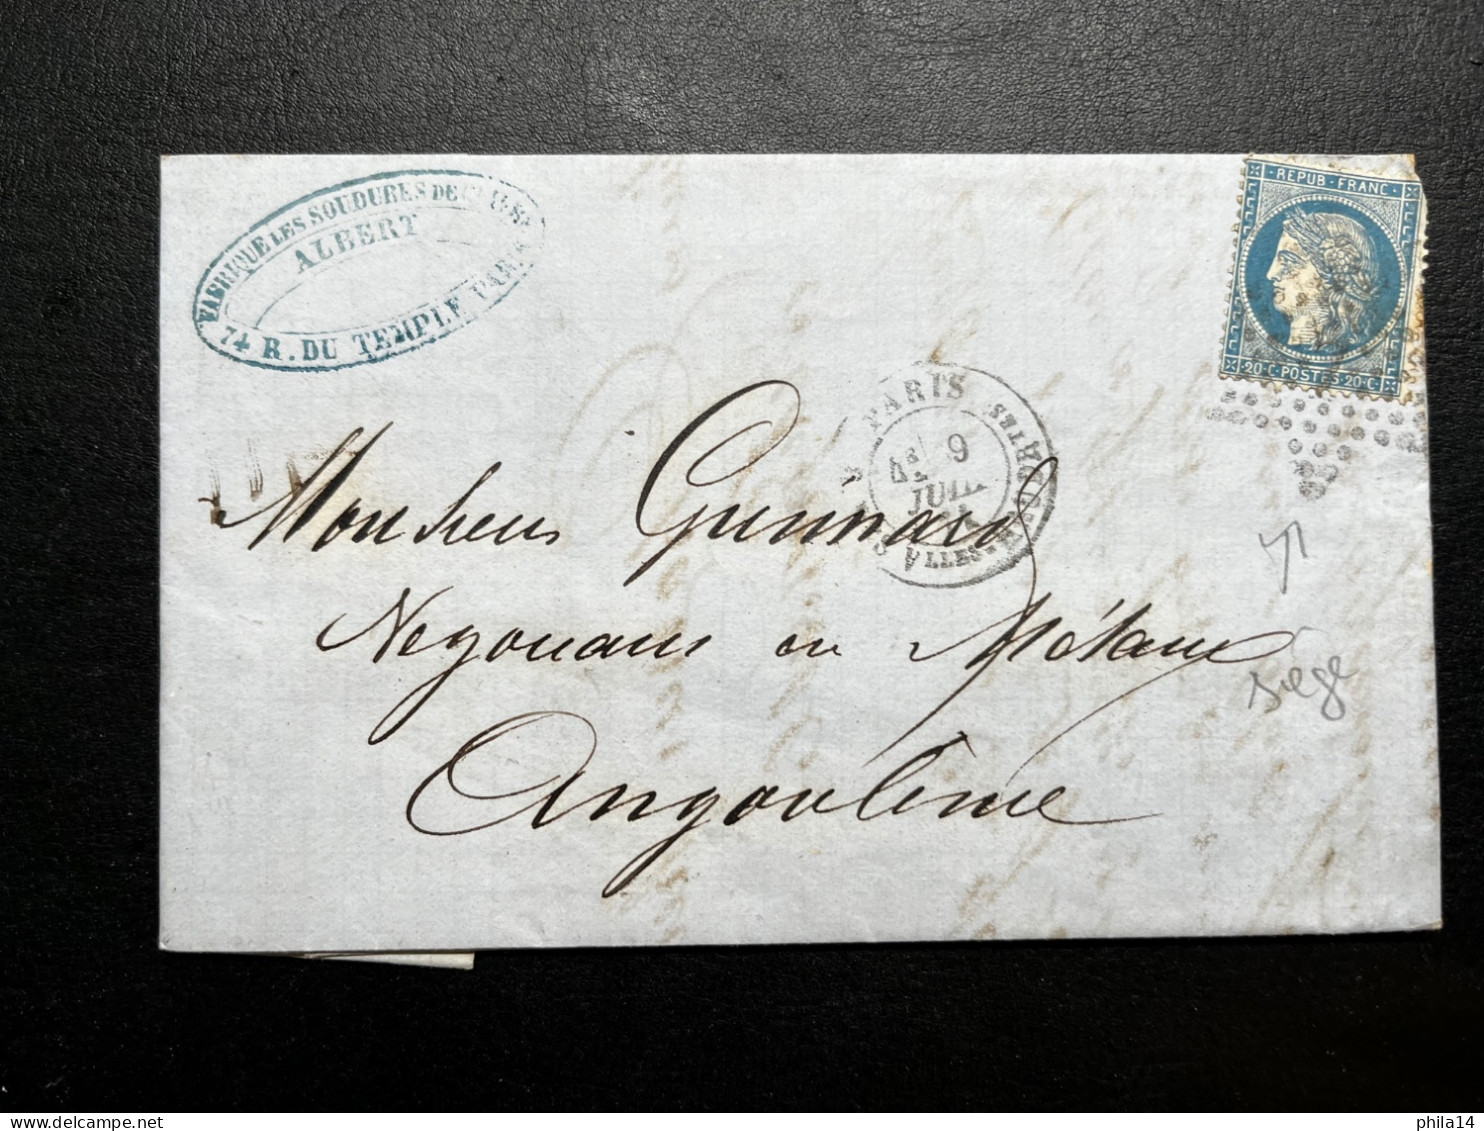 FABRIQUE LES SOUDURES DE
ALBERT
74 R. DU TEMPLE PARIS
REPUB. FRANC.
20 C. POSTES 20 C.
PARIS
9
JUIL
Monsieur Guimard
Negotians en Métaux
Angoulême
siege
phila14